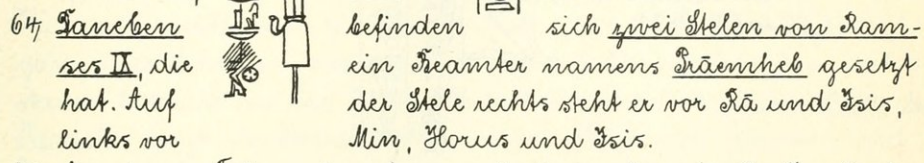 64) Daneben befinden sich zwei Stelen von Ram-
ses IX, die ein Beamter namens Prāemheb gesetzt
hat. Auf der Stele rechts steht er vor Rā und Isis,
links vor Min, Horus und Isis.